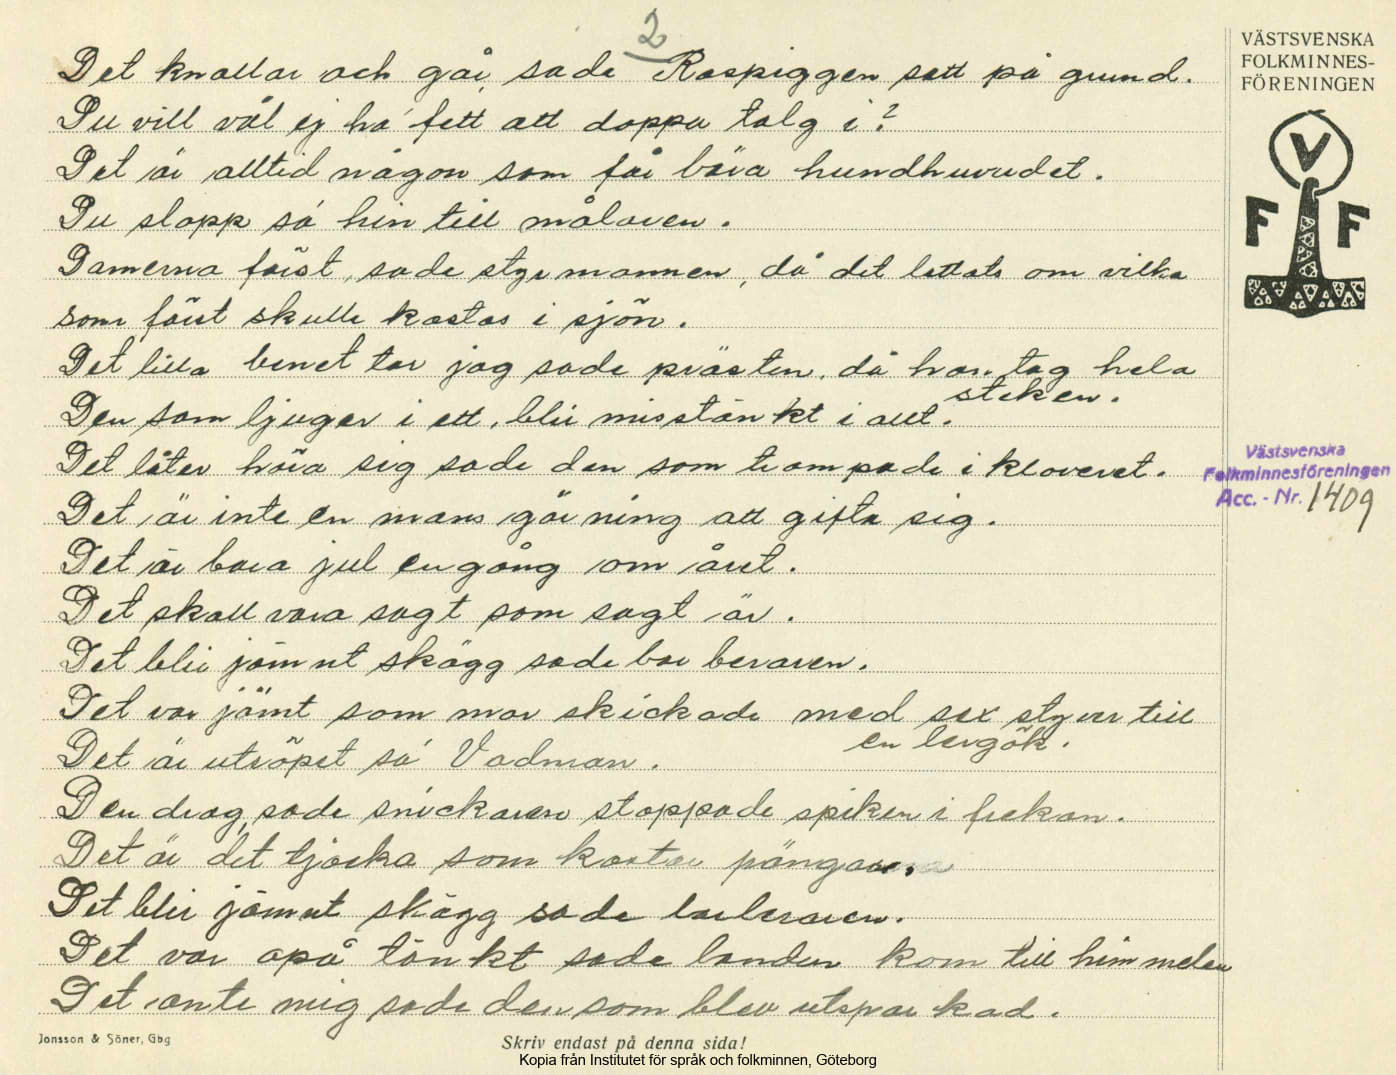 2
Det knallar och går, sade Rospiggen satt på grund.
Du vill väl ej ha fett att doppa talg i?
Det är alltid någon som får bära hundhuvudet.
Du slapp så hin till målaren.
Damerna först, sade styrmannen, då det lottats om vilka
som först skulle kastas i sjön.
Det lilla benet tar jag sade prästen, då han tog hela
steken.
Den som ljuger i ett, blir misstänkt i allt.
Det låter höra sig sade den som trampade i kloveret.
Det är inte en mans göining att gifta sig.
Det är bara jul en gång om året.
Det skall vara sagt som sagt är.
Det blir jämnt skägg sade barberaren.
Det var jämt som man skickade med sex styver till
en lergök.
Det är utsöpet sa Vadman.
Den drog, sade snickaren stoppade spiken i fickan.
Det är det tjocka som kostar pängarna.
Det blir jämnt skägg sade barberaren.
Det var opå tänkt sade bonden kom till himmelen
Det ante mig sade den som blev utsparkad.
VÄSTSVENSKA
FOLKMINNES-
FÖRENINGEN
V
F F
Västsvenska
Folkminnesföreningen
Acc. - Nr. 1409
Jonsson & Söner, Gbg
Skriv endast på denna sida!
Kopia från Institutet för språk och folkminnen, Göteborg